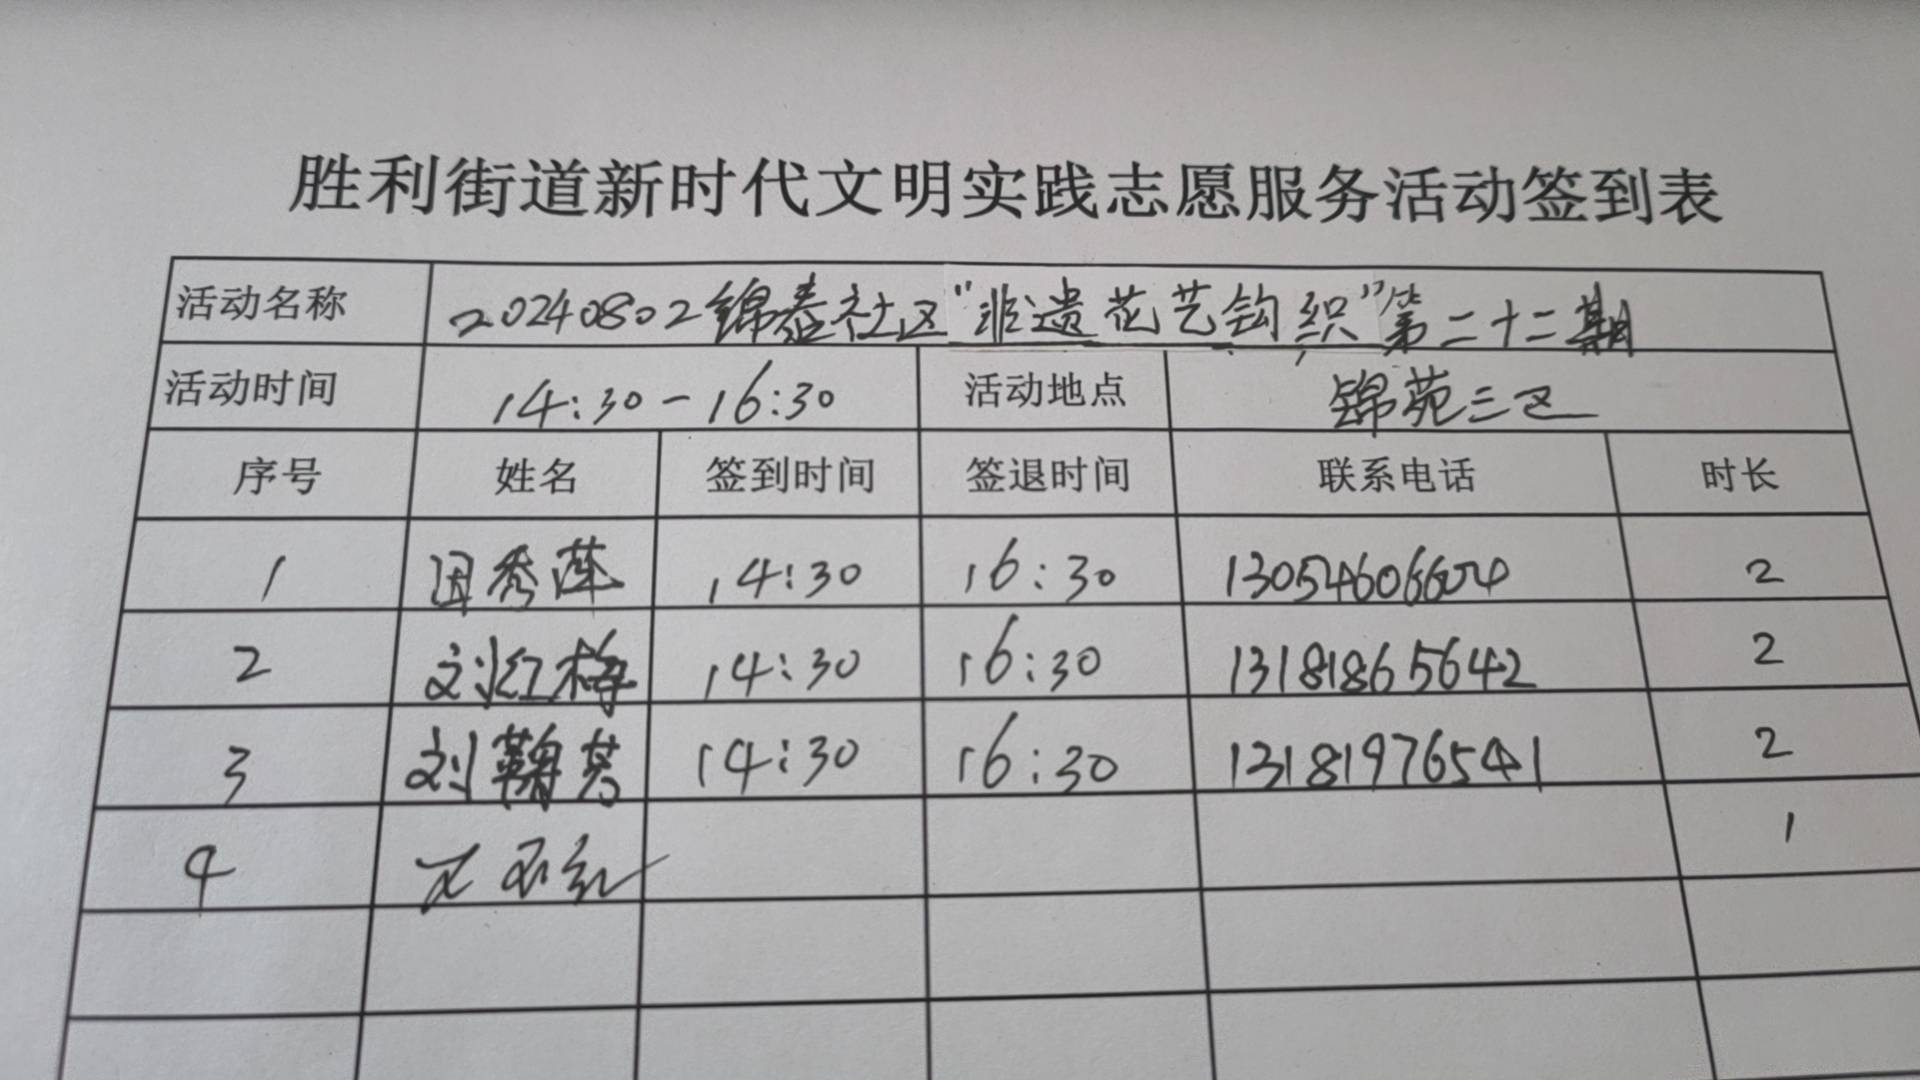 胜利街道新时代文明实践志愿服务活动签到表
活动名称 20240802锦泰社区"非遗花艺钩织"第二十二期
活动时间 14:30-16:30 活动地点 锦苑三区
序号 姓名 签到时间 签退时间 联系电话 时长
1 田秀莲 14:30 16:30 13054606604 2
2 刘红梅 14:30 16:30 13181865642 2
3 刘鞠芳 14:30 16:30 13181976541 2
4 1